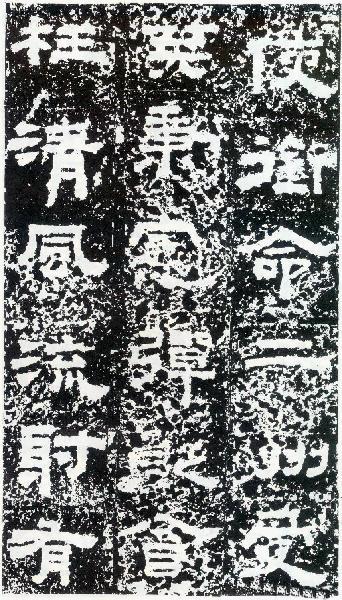 使銜命二州受
莢秉憲彈貪
枉清風流射有